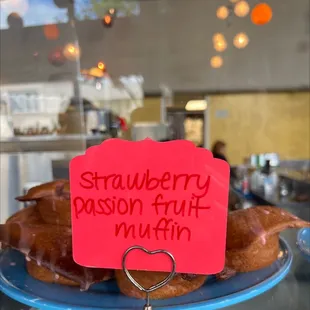 strawberry
passion fruit
muffin